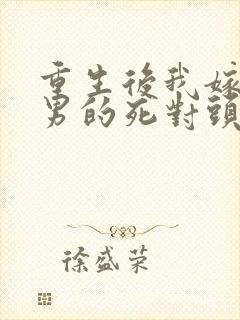 重生後我嫁
男的死對頭
徐盛荣